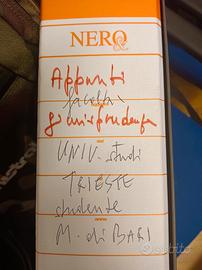 NERO
Appunti
facoltà
giurisprudenza
UNIV. studi
TRIESTE
studente
M. di BARI
subito